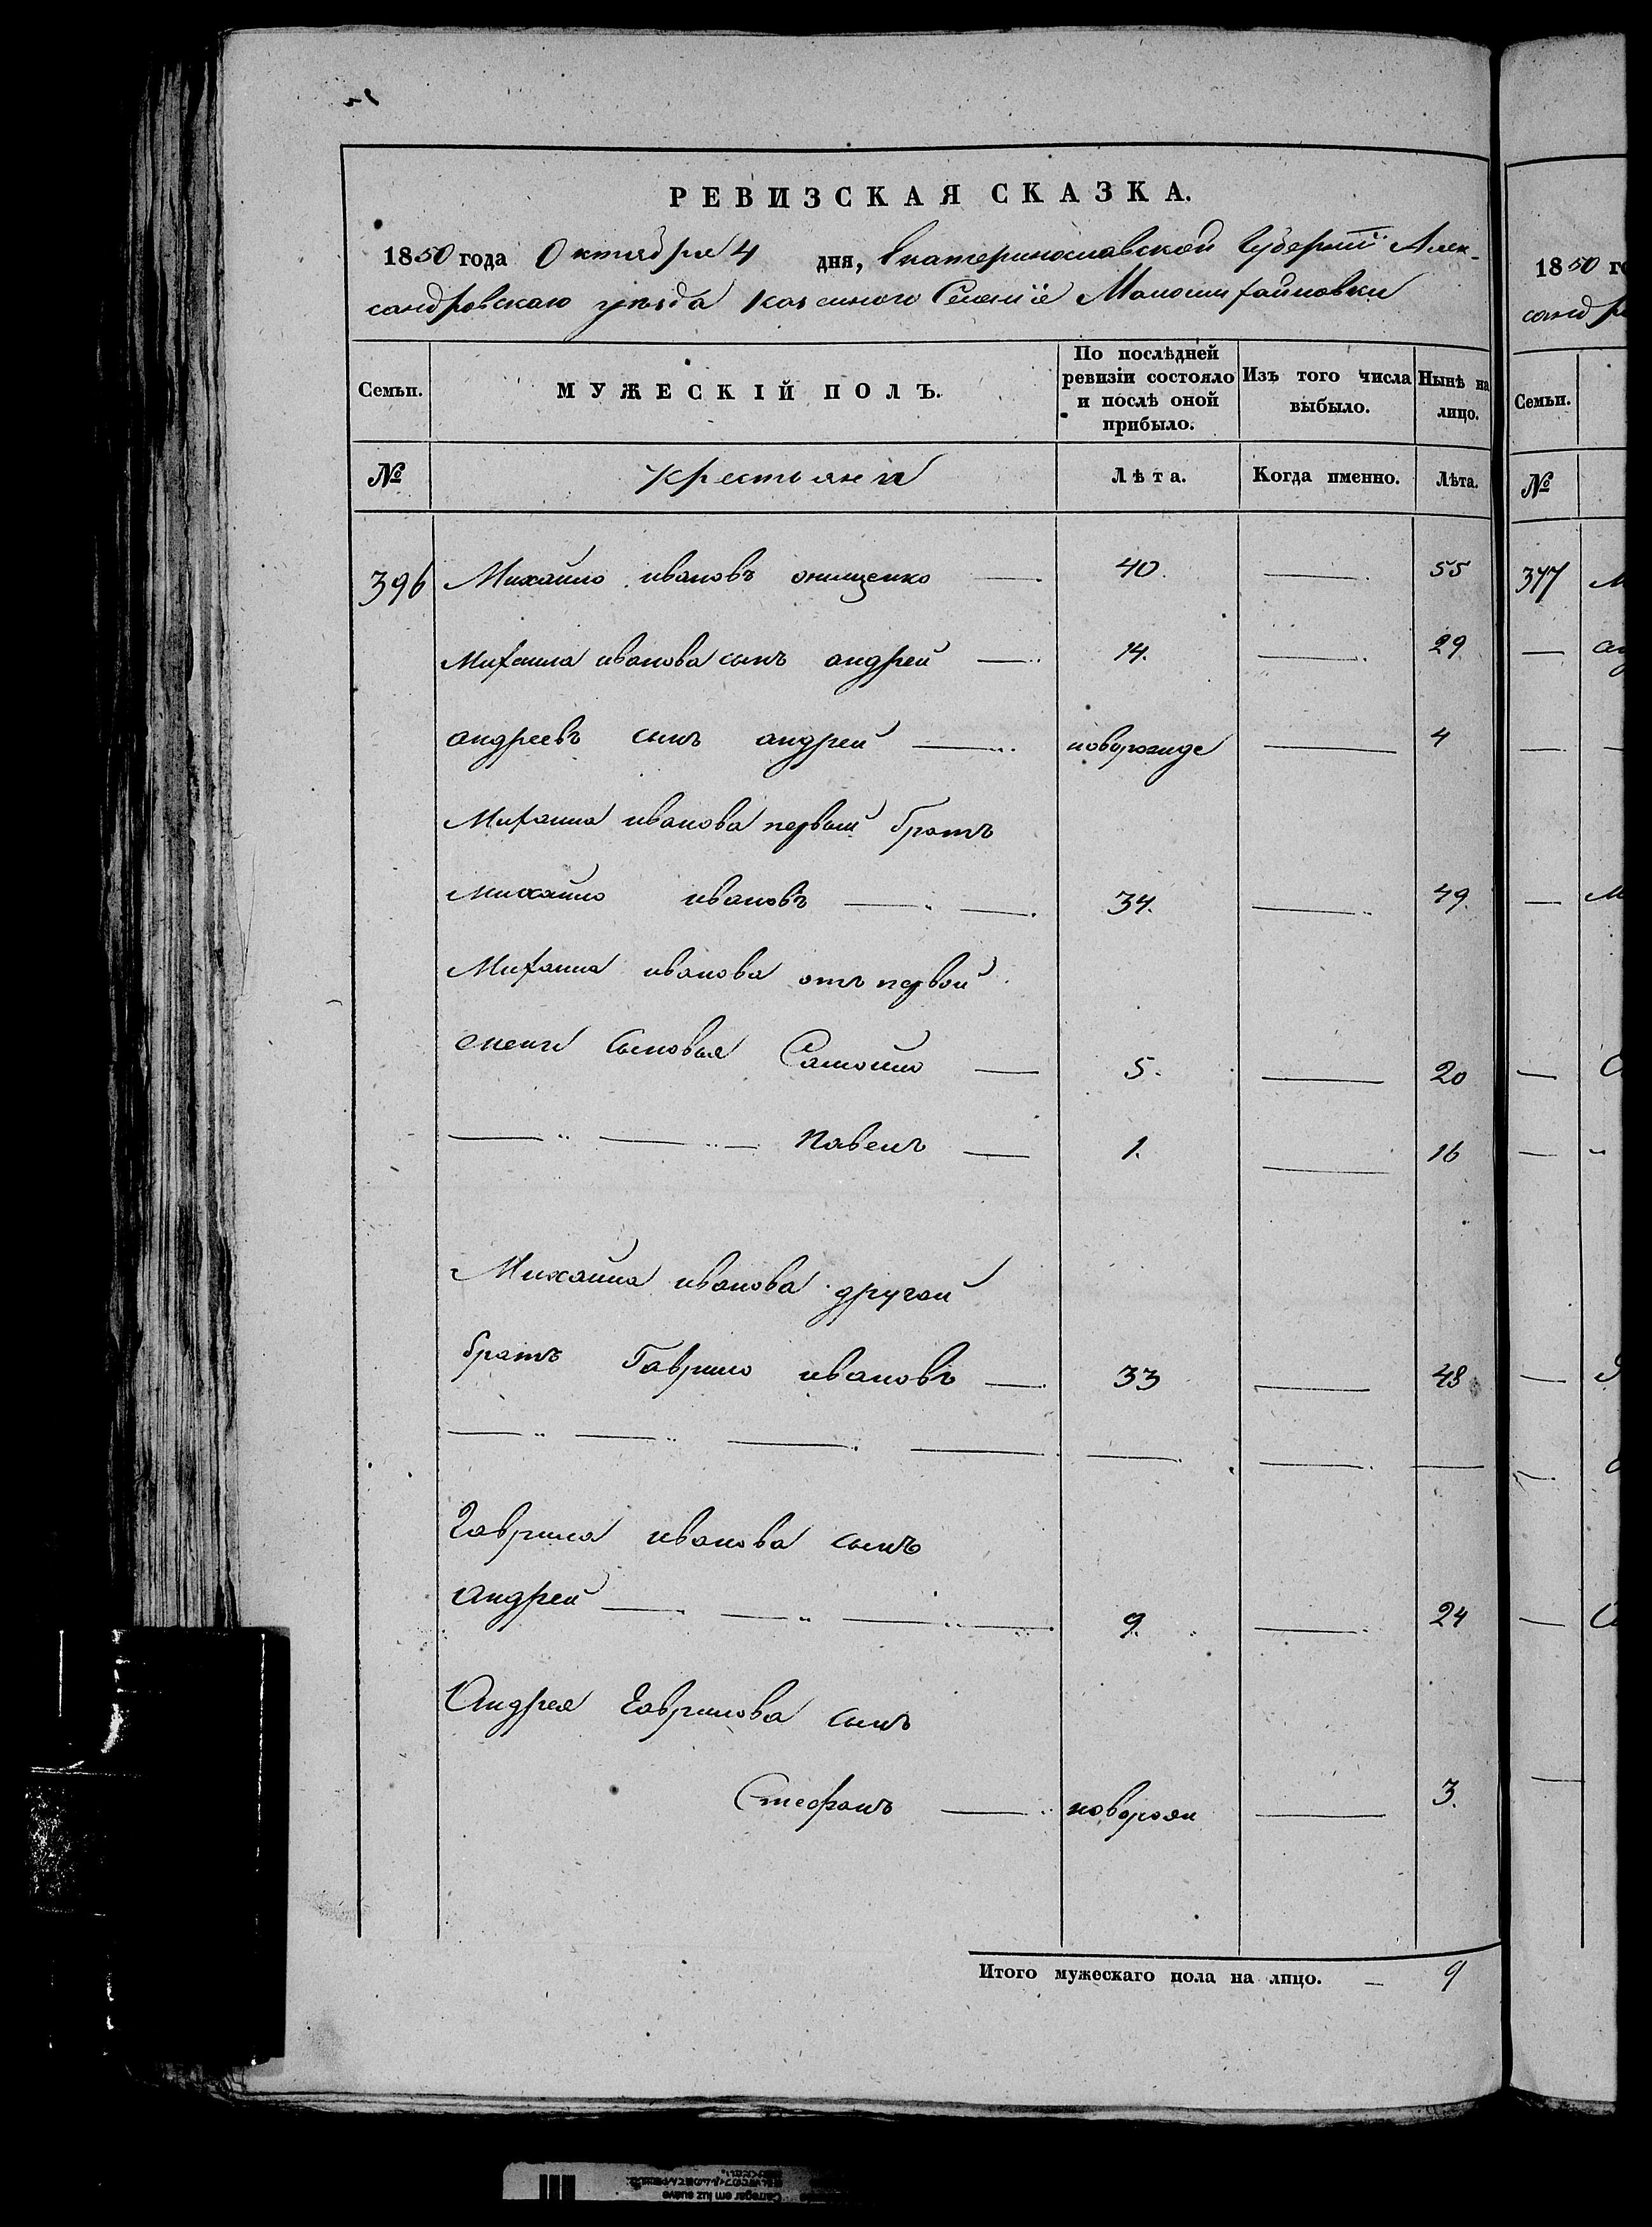 РЕВИЗСКАЯ СКАЗКА.
1850 года Октября 4 дня, Екатеринославской Губерніи Алек-
сандровскаго уезда казенного Селенія Маломихайловки
Семьи. МУЖЕСКІЙ ПОЛЪ. По послѣдней ревизіи состояло и послѣ оной прибыло. Изъ того числа выбыло. Нынѣ на лицо.
№ крестьяне Лѣта. Когда именно. Лѣта.
396 Михайло ивановъ онищенко 40. 55
Михаила иванова сынъ андрей 14. 29
андреевъ сынъ андрей новорожде 4
Михаила иванова первый братъ
михайло ивановъ 34. 49.
Михаила иванова отъ первой
жены сыновья Самойло 5. 20
Павелъ 1. 16
Михаила иванова другой
братъ Гаврило ивановъ 33 48
Гаврила иванова сынъ
Андрей 9. 24
Андрея Гаврилова сынъ
Стефанъ новорож 3.
Итого мужескаго пола на лицо. 9
1850 го
санд
Семьи.
№
377